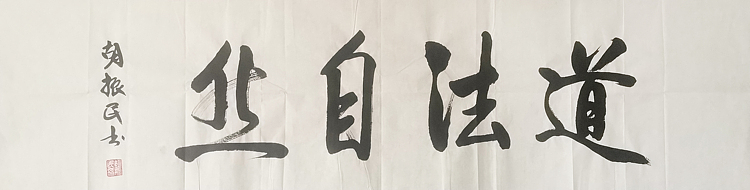 道法自然
胡振民书